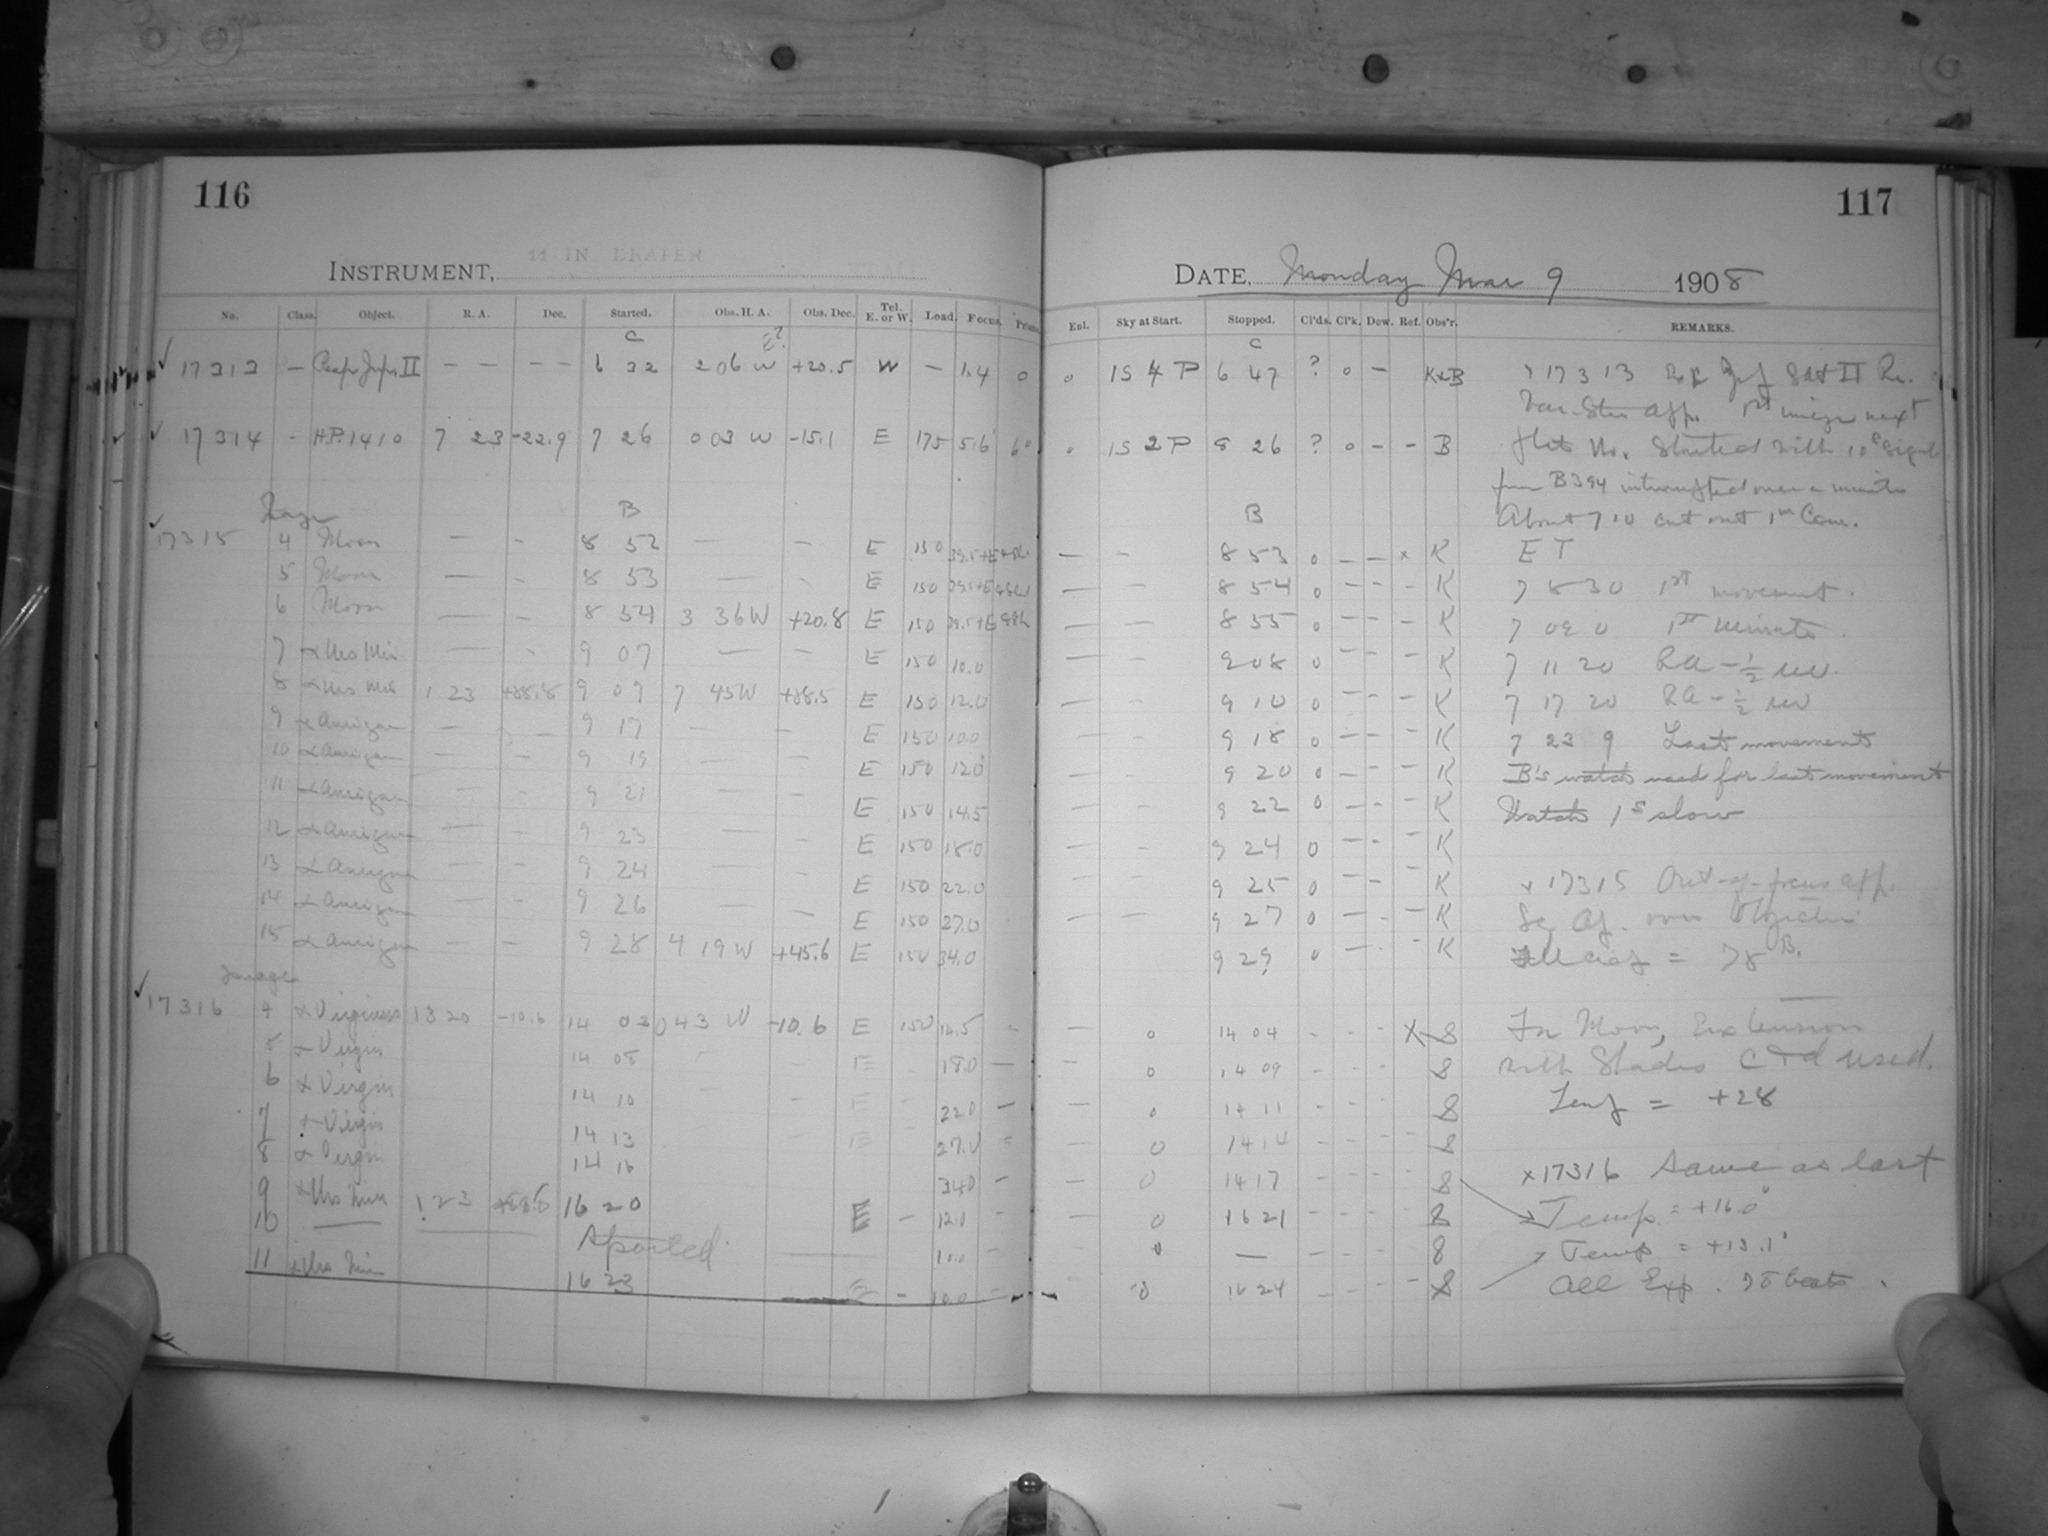 116
INSTRUMENT, 11 IN DRAPER
No. Class. Object. R. A. Dec. Started. Obs. H. A. Obs. Dec. Tel. E. or W. Load. Focus.
C E?
17313 — Jup. II — — — — 6 32 2 06 W +20.5 W — 1.4 0
17314 - H.P. 1410 7 23 -22.9 7 26 0 03 W -15.1 E 175 5.6 60
B
17315 4 Moon — — 8 52 — — E 150
5 Moon — - 8 53 — - E 150
6 Moon — - 8 54 3 36 W +20.8 E 150
7 — - 9 07 — - E 150 10.0
8 1 23 +88.8 9 09 7 45 W +88.5 E 150 12.0
9 α Aurigae — - 9 17 - - E 150 10.0
10 α Aurigae — - 9 19 — - E 150 12.0
11 α Aurigae — - 9 21 — - E 150 14.5
12 α Aurigae — - 9 23 — - E 150 18.0
13 α Aurigae — - 9 24 — - E 150 22.0
14 α Aurigae — - 9 26 — - E 150 27.0
15 α Aurigae — - 9 28 4 19 W +45.6 E 150 34.0
Images
17316 4 α Virginis 13 20 -10.6 14 03 0 43 W -10.6 E 150 14.5 -
5 α Virgin 14 08 E 18.0 —
6 α Virgin 14 10 E - 22.0 —
7 α Virgin 14 13 E 27.0 =
8 α Virgin 14 16 34.0 -
9 α Urs Min 1 23 +88.8 16 20 E — 12.0 -
10 — Spoiled 10.0 -
11 α Urs Min 16 23 E - 10.0 -
117
DATE, Monday Mar 9 1908
Enl. Sky at Start. Stopped. Cl'ds. Cl'k. Dew. Ref. Obs'r. REMARKS.
C
0 1S 4 P 6 47 ? 0 — K&B x 17313 Sat II
app. 1st next
0 1S 2 P 8 26 ? 0 - - B No. Started with 10s signal
from B394 interrupted over a minute
B
About 7 10 cut out 1m
— - 8 53 0 — — x K E T
— — 8 54 0 — - - K 7 8 30 1st movement.
— — 8 55 0 — - - K 7 09 0 1st minute.
— — 9 08 0 — - - K 7 11 20 RA - ½ rev.
— - 9 10 0 - - - K 7 17 20 RA - ½ rev
- - 9 18 0 — - - K 7 22 9 Last movement
- - 9 20 0 — - - K B's watch used for last movement
— - 9 22 0 — - - K Watch 1s slow
— - 9 24 0 — - - K
— - 9 25 0 — - - K x 17315 Out-of-focus app.
— — 9 27 0 — - - K over Objective
9 29 0 — - - K = 78 B.
— 0 14 04 - - - X S In Moon, Extension
— 0 14 09 - - - S with Shades C & d used.
— 0 14 11 - - - S Temp = +28
— 0 14 14 - - - S
— 0 14 17 - - - S x 17316 Same as last
— 0 16 21 - - - S Temp. = +16.0°
0 — - - - S Temp = +13.1°
0 16 24 - - - S All Exp. 78 beats.